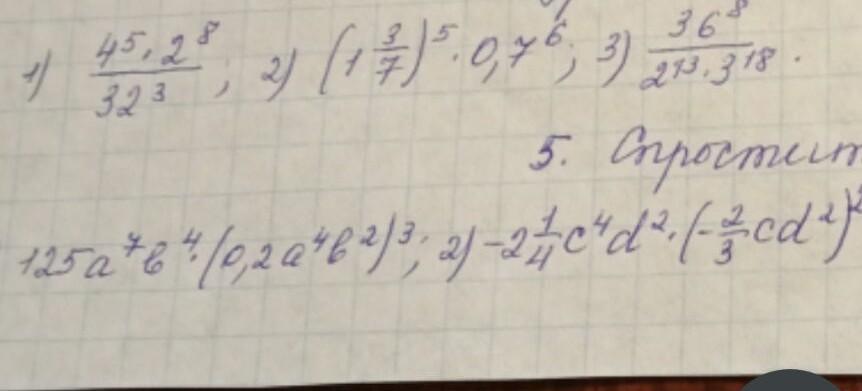 1) 4⁵·2⁸/32³; 2) (1 3/7)⁵·0,7⁶; 3) 36⁸/(2¹³·3¹⁸).
5. Спростит
125a⁷b⁴·(0,2a⁴b²)³; 2) -2 1/4 c⁴d²·(-2/3 cd²)²